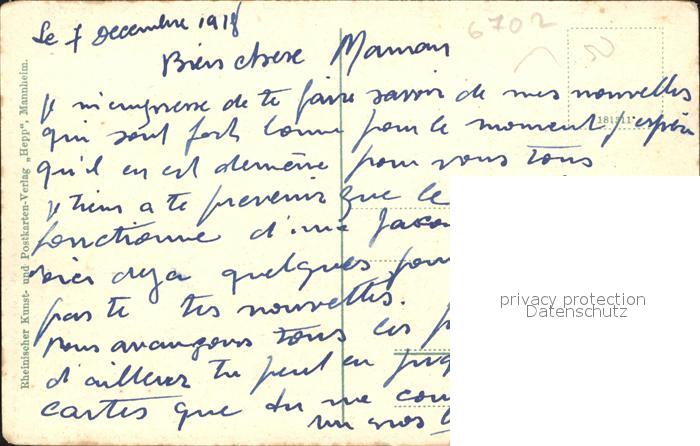 Le 7 Decembre 1918
6702
Bien chere Maman
je m'empresse de te faire savoir de mes nouvelles
qui sont fort bonne pour le moment j'espère
qu'il en est de même pour vous tous
je tiens a te prevenir que le
fonctionne d'une
deja quelques jour
pas te tes nouvelles.
nous avançons tous les
d'ailleur tu peut en
cartes que tu me
un gros
181511
Rheinischer Kunst- und Postkarten-Verlag „Hepp“, Mannheim.
privacy protection
Datenschutz